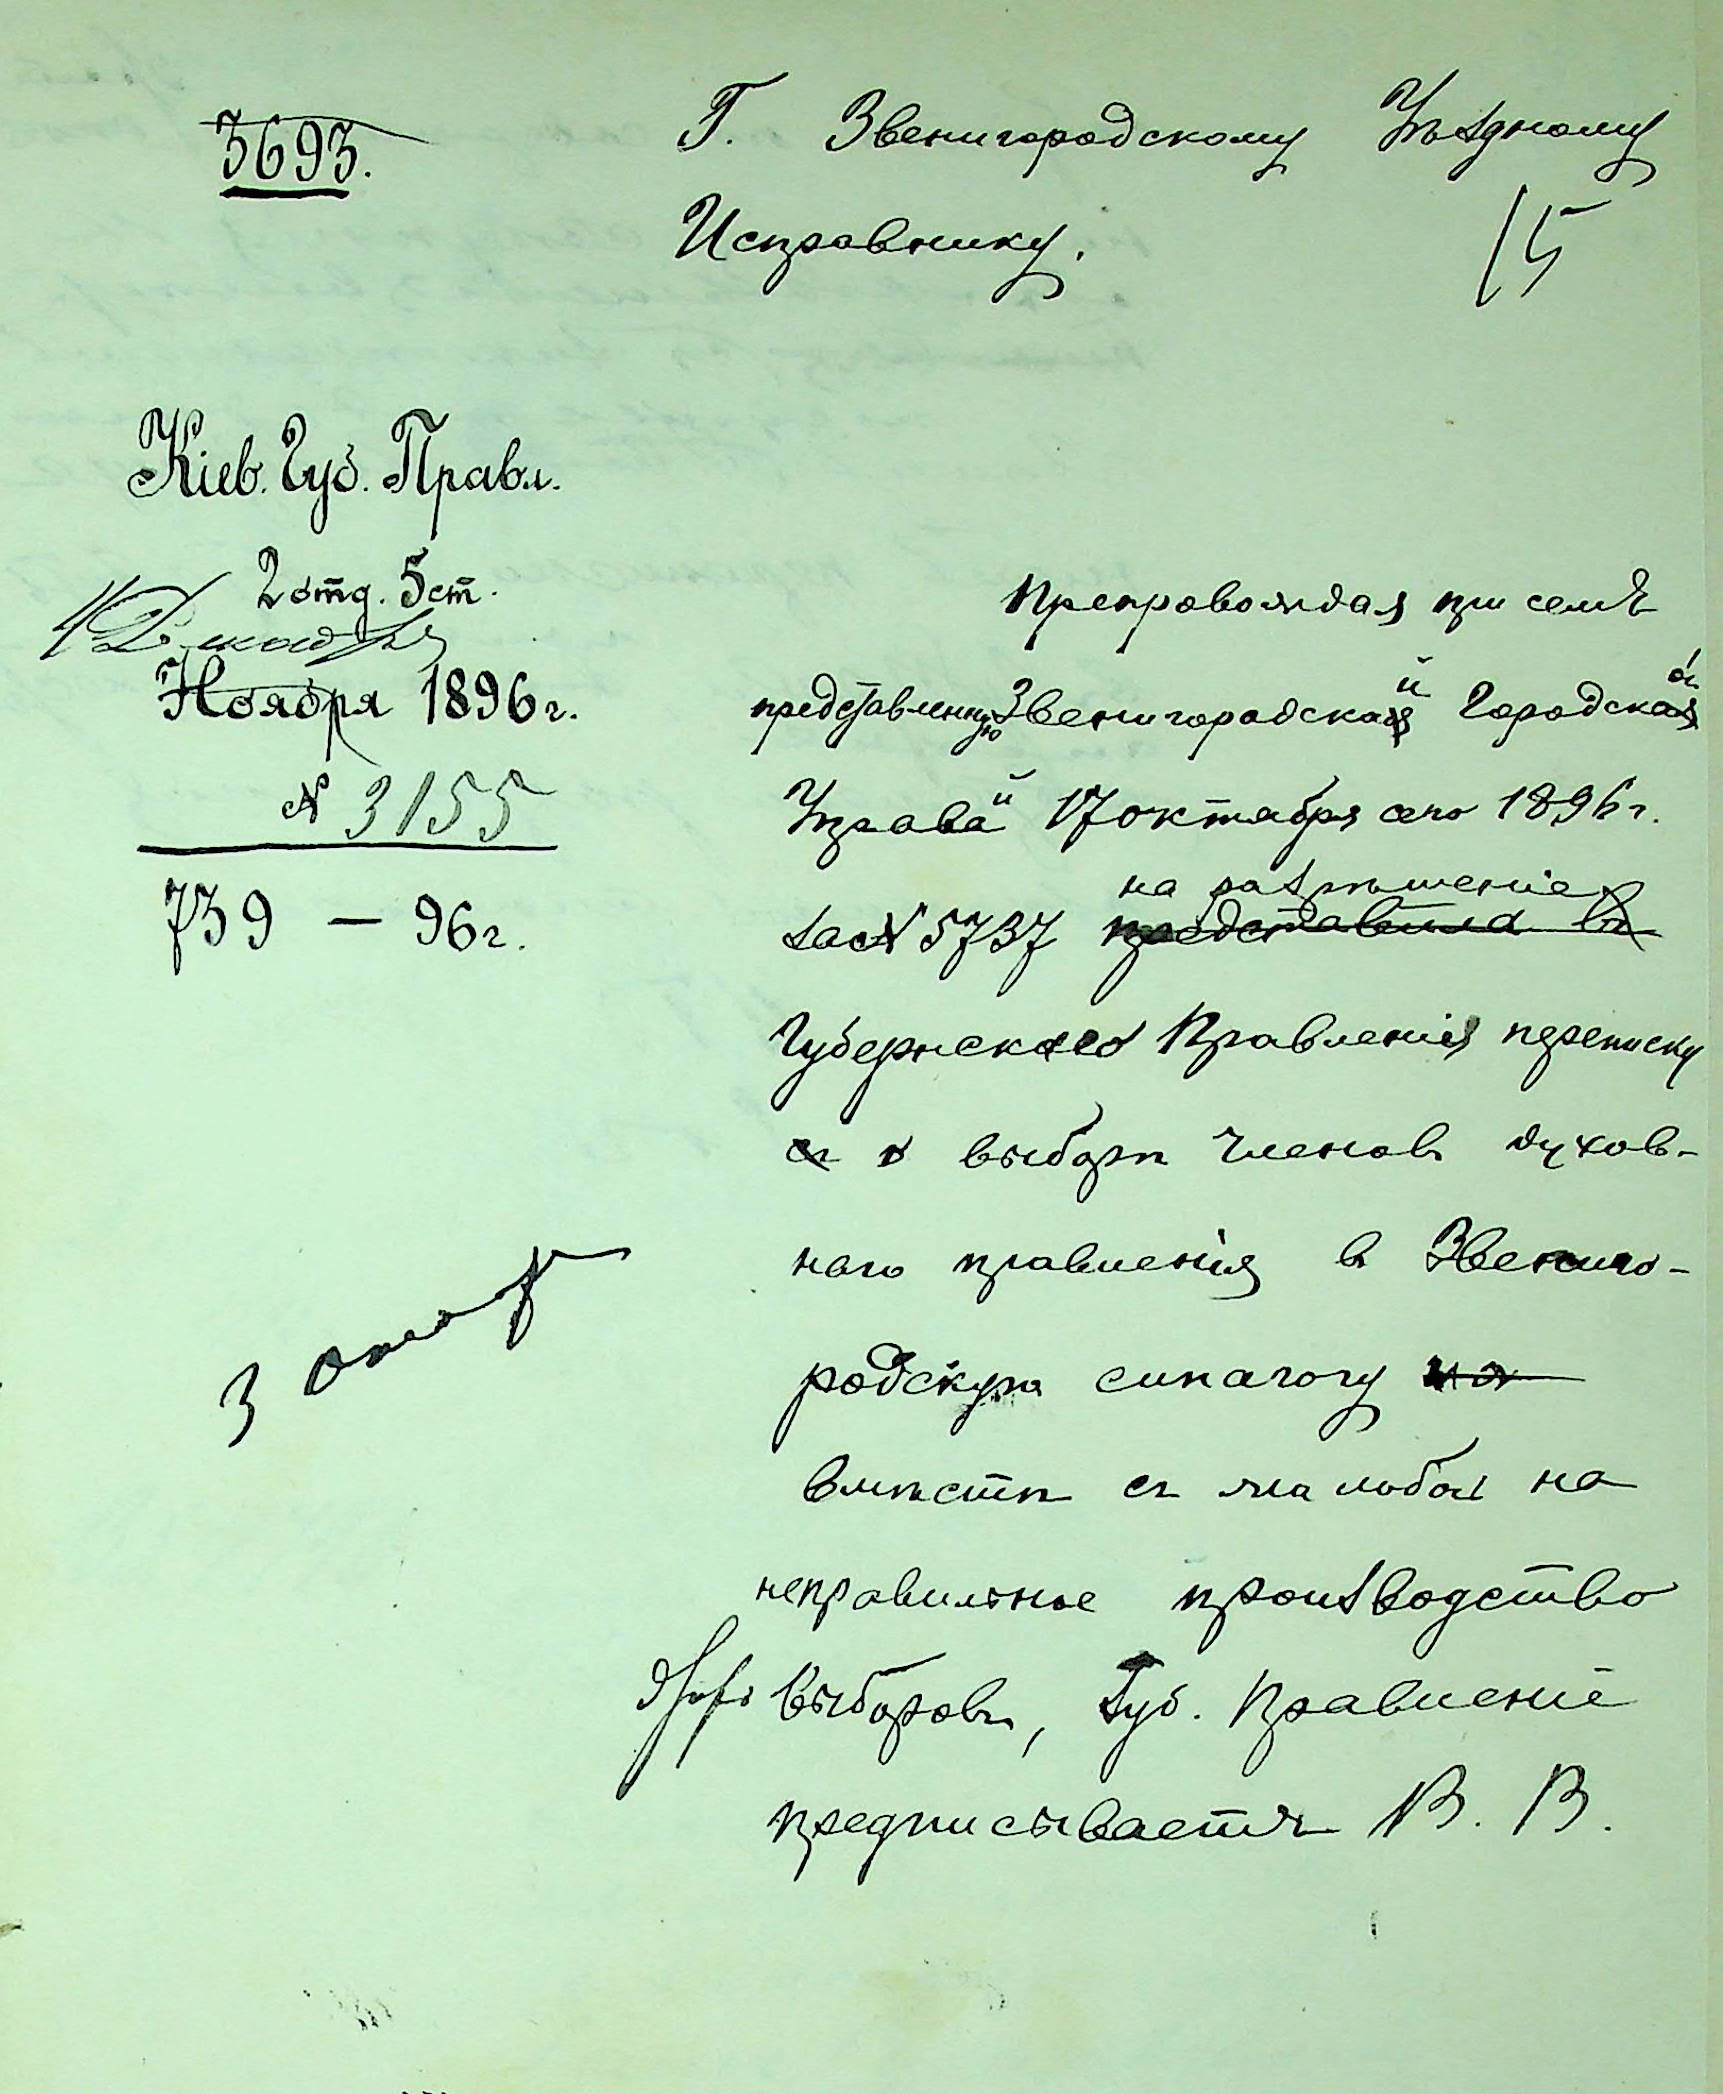 3693.
Г. Звенигородскому Уѣздному
Исправнику.
15
Кіев. Губ. Правл.
2 отд. 5 ст.
Декабря
Ноября 1896 г.
№ 3155
739 – 96 г.
Препровождая при семъ
представленную Звенигородской Городской
Управой 17 октября сего 1896 г.
за № 5737 представила въ
на разрѣшеніе
Губернскаго Правленія переписку
съ о выборѣ членовъ духов-
наго правленія в Звениго-
родскую синагогу на
вмѣстѣ съ жалобой на
неправильное производство
выборовъ, Губ. Правленіе
предписываетъ В. В.
3